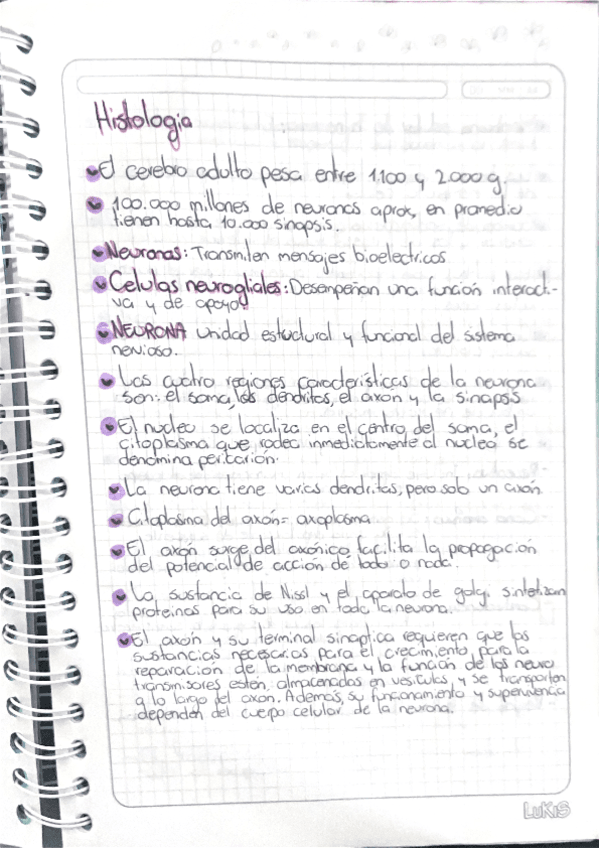 Histologia
El cerebro adulto pesa entre 1.100 y 2.000 g.
100.000 millones de neuronas aprox, en promedio
tienen hasta 10.000 sinapsis.
Neuronas: Transmiten mensajes bioelectricos
Celulas neurogliales: Desempeñan una función interacti-
va y de apoyo
NEURONA unidad estructural y funcional del sistema
nervioso.
Las cuatro regiones caracteristicas de la neurona
son: el soma, las dendritas, el axon y la sinapsis
El nucleo se localiza en el centro del soma, el
citoplasma que rodea inmediatamente al nucleo se
denomina pericarion.
La neurona tiene varias dendritas, pero solo un axón
Citoplasma del axón = axoplasma
El axón surge del axónico facilita la propagación
del potencial de acción de todo o nada.
La sustancia de Nissl y el aparato de golgi sintetizan
proteinas para su uso en toda la neurona.
El axón y su terminal sinaptica requieren que las
sustancias necesarias para el crecimiento, para la
reparación de la membrana y la función de los neuro
transmisores estén almacenados en vesiculas, y se transporten
a lo largo del axon. Además, su funcionamiento y supervivencia
dependen del cuerpo celular de la neurona.
LUKIS